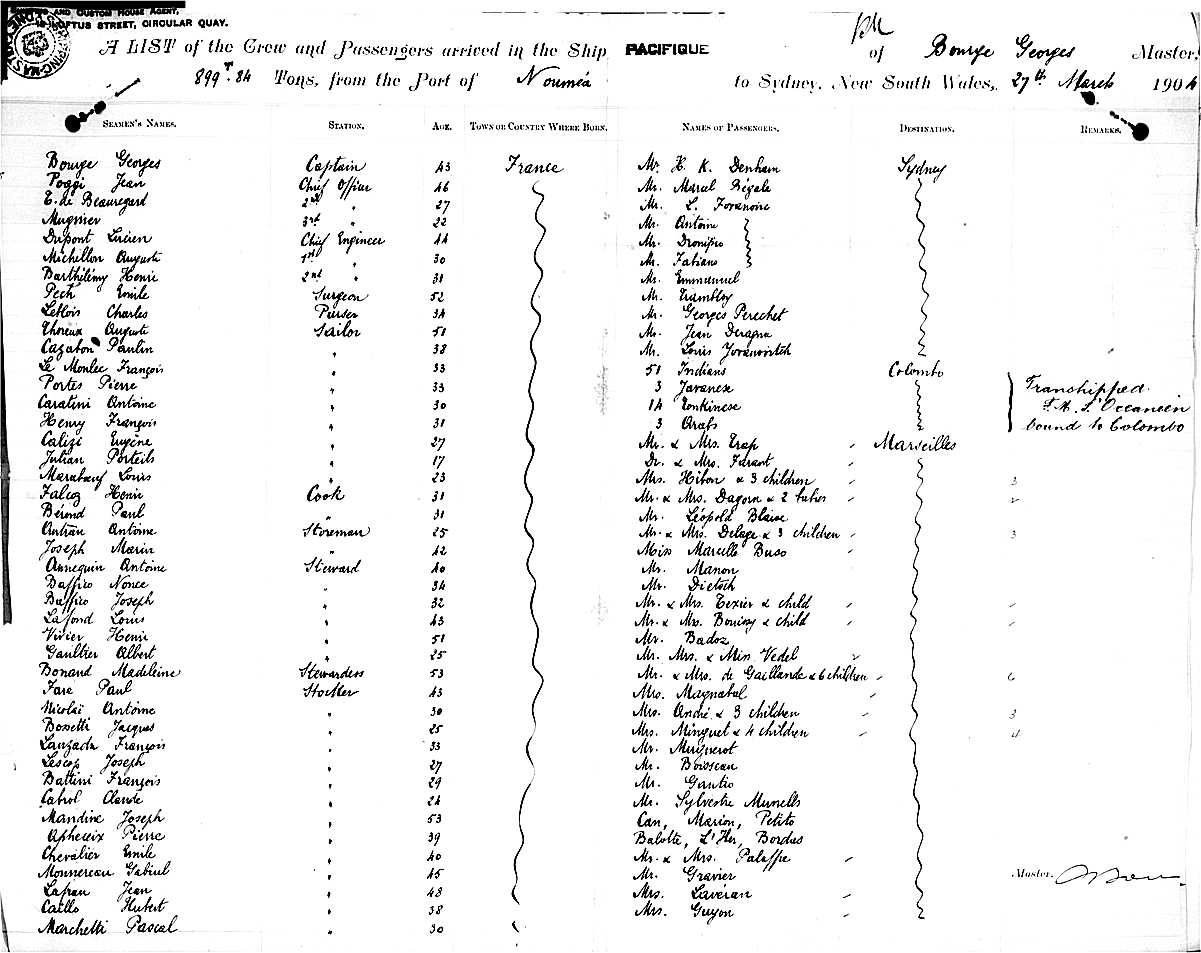 AND CUSTOM HOUSE AGENT,
LOFTUS STREET, CIRCULAR QUAY.
A LIST of the Crew and Passengers arrived in the Ship PACIFIQUE of Bourge Georges Master,
899 T. 84 Tons, from the Port of Nouméa to Sydney, New South Wales, 27th March 1904
SEAMEN'S NAMES. STATION. AGE. TOWN OR COUNTRY WHERE BORN. NAMES OF PASSENGERS. DESTINATION. REMARKS.
Bourge Georges Captain 43 France Mr. H. K. Denham Sydney
Poggi Jean Chief Officer 46 Mr. Marcel Rigale
E. de Beauregard 2nd " 27 Mr. L.
Mugnier 3rd " 22 Mr. Antoine
Dupont Lucien Chief Engineer 44 Mr.
Michillon Auguste 1st " 30 Mr. Fabians
Barthélémy Henri 2nd " 31 Mr. Emmanuel
Pech Emile Surgeon 52 Mr. Trambloy
Leblois Charles Purser 34 Mr. Georges Perechet
Thoreux Auguste Sailor 51 Mr. Jean Deragna
Cazabon Paulin " 38 Mr. Louis
Le Monlec François " 33 51 Indians Colombo
Portes Pierre " 33 3 Javanese Transhipped
Caratini Antoine " 30 14 Tonkinese F. M. S. "Oceanien
Henry François " 31 3 Arabs bound to Colombo
Calizi Eugène " 27 Mr. & Mrs. Trap Marseilles
Julian Porteils " 17 Dr. & Mrs. Farant
Marabœuf Louis " 23 Mrs. Hibon & 3 children 3
Falcoz Henri Cook 31 Mr. & Mrs. Dagorn & 2 babies 2
Bérond Paul " 31 Mr. Léopold Blaise
Autran Antoine Storeman 25 Mr. & Mrs. Delage & 3 children 3
Joseph Marin " 42 Miss Marcelle Buss
Annequin Antoine Steward 40 Mr. Manon
Baffico Nonce " 34 Mr. Dietsch
Baffico Joseph " 32 Mr. & Mrs. Texier & child
Lafond Louis " 43 Mr. & Mrs. & child
Vivier Henri " 51 Mr. Badoz
Gaultier Albert " 25 Mr. Mrs. & Miss Vedel
Bonand Madeleine Stewardess 53 Mr. & Mrs. de Gaillande & 6 children 6
Fare Paul Stocker 43 Mrs. Magnabal
Nicolaï Antoine " 30 Mrs. André & 3 children 3
Bossetti Jacques " 25 Mrs. Minguet & 4 children 4
Lanzada François " 33 Mr.
Lescop Joseph " 27 Mr. Boisseau
Battini François " 29 Mr. Gantio
Cabrol Claude " 24 Mr. Sylvestre Munells
Mandine Joseph " 53 Can, Marion, Petito
Apheceix Pierre " 39 Balotte, L'Her, Bordes
Chevalier Emile " 40 Mr. & Mrs. Palaffre
Monnereau Gabriel " 45 Mr. Gravier Master.
Lafran Jean " 48 Mrs. Lavéran
Caillo Hubert " 38 Mrs. Guyon
Marchetti Pascal " 30